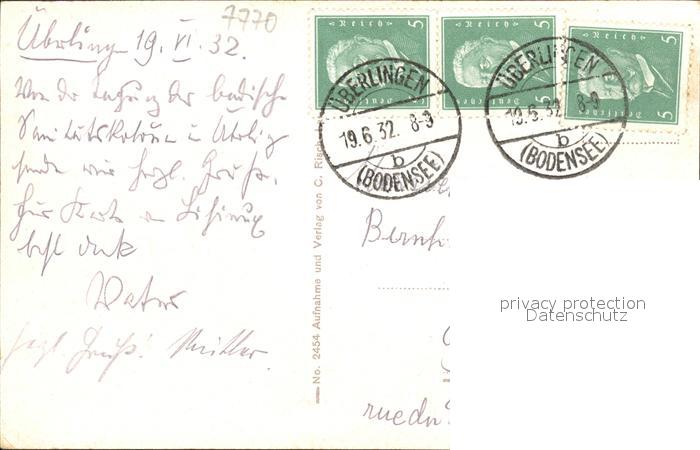 7770
Überlingen 19. VI. 32.
Von der Tagung der badischen
Sanitätskolonn in Überlg
sende wir herzl. Grüße.
Für Karte
best dank
Vater
herzl. Gruß! Mutter.
No. 2454 Aufnahme und Verlag von C. Risch
Deutsches Reich 5
Deutsches Reich 5
Deutsches Reich 5
ÜBERLINGEN
19.6.32. 8-9
b
(BODENSEE)
ÜBERLINGEN
19.6.32. 8-9
b
(BODENSEE)
Bernh
privacy protection
Datenschutz